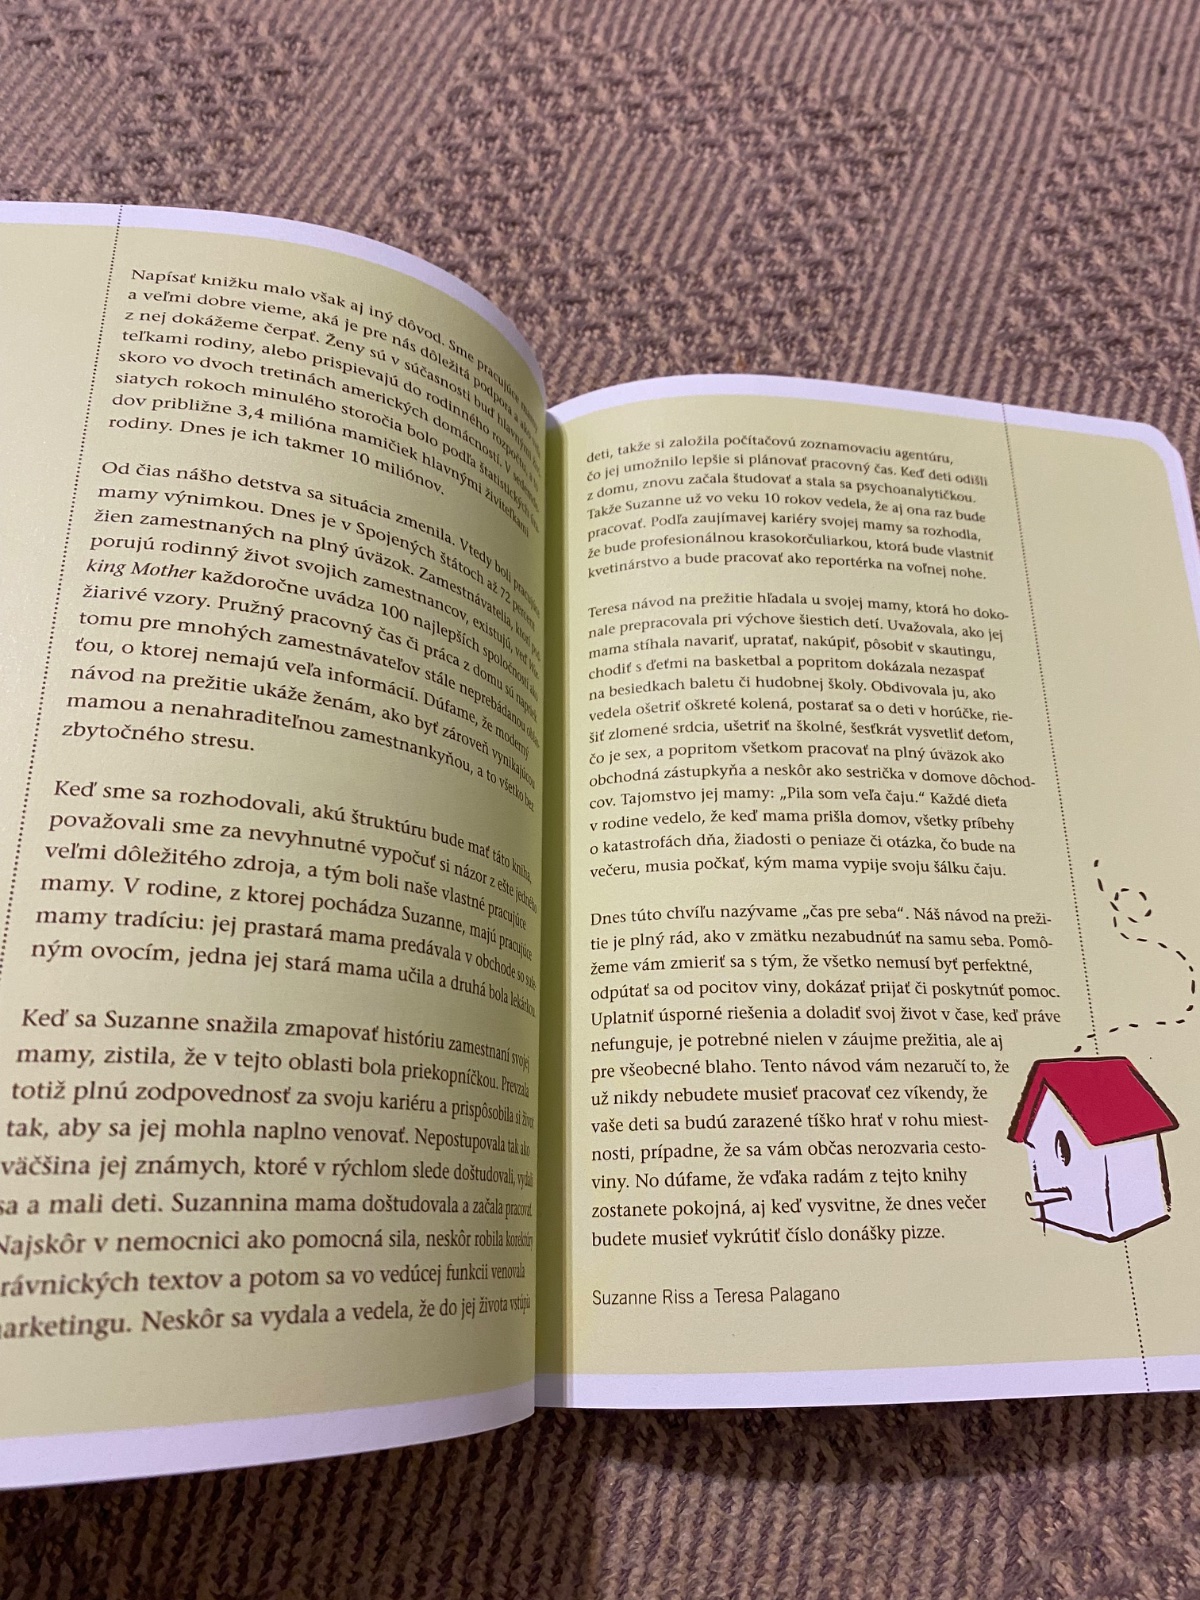 Napísať knižku malo však aj iný dôvod. Sme pracujúce mamy
a veľmi dobre vieme, aká je pre nás dôležitá podpora a
z nej dokážeme čerpať. Ženy sú v súčasnosti buď hlavnými
teľkami rodiny, alebo prispievajú do rodinného rozpočtu,
skoro vo dvoch tretinách amerických domácností. V
siatych rokoch minulého storočia bolo podľa štatistických
dov približne 3,4 milióna mamičiek hlavnými živiteľkami
rodiny. Dnes je ich takmer 10 miliónov.
Od čias nášho detstva sa situácia zmenila. Vtedy boli pracujúce
mamy výnimkou. Dnes je v Spojených štátoch až 72 percent
žien zamestnaných na plný úväzok. Zamestnávatelia, ktorí
porujú rodinný život svojich zamestnancov, existujú, veď
king Mother každoročne uvádza 100 najlepších spoločností ako
žiarivé vzory. Pružný pracovný čas či práca z domu sú napriek
tomu pre mnohých zamestnávateľov stále neprebádanou
ťou, o ktorej nemajú veľa informácií. Dúfame, že moderný
návod na prežitie ukáže ženám, ako byť zároveň vynikajúcou
mamou a nenahraditeľnou zamestnankyňou, a to všetko bez
zbytočného stresu.
Keď sme sa rozhodovali, akú štruktúru bude mať táto kniha,
považovali sme za nevyhnutné vypočuť si názor z ešte jedného
veľmi dôležitého zdroja, a tým boli naše vlastné pracujúce
mamy. V rodine, z ktorej pochádza Suzanne, majú pracujúce
mamy tradíciu: jej prastará mama predávala v obchode so suše-
ným ovocím, jedna jej stará mama učila a druhá bola lekárkou.
Keď sa Suzanne snažila zmapovať históriu zamestnaní svojej
mamy, zistila, že v tejto oblasti bola priekopníčkou. Prevzala
totiž plnú zodpovednosť za svoju kariéru a prispôsobila si život
tak, aby sa jej mohla naplno venovať. Nepostupovala tak ako
väčšina jej známych, ktoré v rýchlom slede doštudovali, vydali
sa a mali deti. Suzannina mama doštudovala a začala pracovať.
Najskôr v nemocnici ako pomocná sila, neskôr robila korektúry
rávnických textov a potom sa vo vedúcej funkcii venovala
arketingu. Neskôr sa vydala a vedela, že do jej života vstúpia
deti, takže si založila počítačovú zoznamovaciu agentúru,
čo jej umožnilo lepšie si plánovať pracovný čas. Keď deti odišli
z domu, znovu začala študovať a stala sa psychoanalytičkou.
Takže Suzanne už vo veku 10 rokov vedela, že aj ona raz bude
pracovať. Podľa zaujímavej kariéry svojej mamy sa rozhodla,
že bude profesionálnou krasokorčuliarkou, ktorá bude vlastniť
kvetinárstvo a bude pracovať ako reportérka na voľnej nohe.
Teresa návod na prežitie hľadala u svojej mamy, ktorá ho doko-
nale prepracovala pri výchove šiestich detí. Uvažovala, ako jej
mama stíhala navariť, upratať, nakúpiť, pôsobiť v skautingu,
chodiť s deťmi na basketbal a popritom dokázala nezaspať
na besiedkach baletu či hudobnej školy. Obdivovala ju, ako
vedela ošetriť oškreté kolená, postarať sa o deti v horúčke, rie-
šiť zlomené srdcia, ušetriť na školné, šesťkrát vysvetliť deťom,
čo je sex, a popritom všetkom pracovať na plný úväzok ako
obchodná zástupkyňa a neskôr ako sestrička v domove dôchod-
cov. Tajomstvo jej mamy: „Pila som veľa čaju.“ Každé dieťa
v rodine vedelo, že keď mama prišla domov, všetky príbehy
o katastrofách dňa, žiadosti o peniaze či otázka, čo bude na
večeru, musia počkať, kým mama vypije svoju šálku čaju.
Dnes túto chvíľu nazývame „čas pre seba“. Náš návod na preži-
tie je plný rád, ako v zmätku nezabudnúť na samu seba. Pomô-
žeme vám zmieriť sa s tým, že všetko nemusí byť perfektné,
odpútať sa od pocitov viny, dokázať prijať či poskytnúť pomoc.
Uplatniť úsporné riešenia a doladiť svoj život v čase, keď práve
nefunguje, je potrebné nielen v záujme prežitia, ale aj
pre všeobecné blaho. Tento návod vám nezaručí to, že
už nikdy nebudete musieť pracovať cez víkendy, že
vaše deti sa budú zarazené tíško hrať v rohu miest-
nosti, prípadne, že sa vám občas nerozvaria cesto-
viny. No dúfame, že vďaka radám z tejto knihy
zostanete pokojná, aj keď vysvitne, že dnes večer
budete musieť vykrútiť číslo donášky pizze.
Suzanne Riss a Teresa Palagano